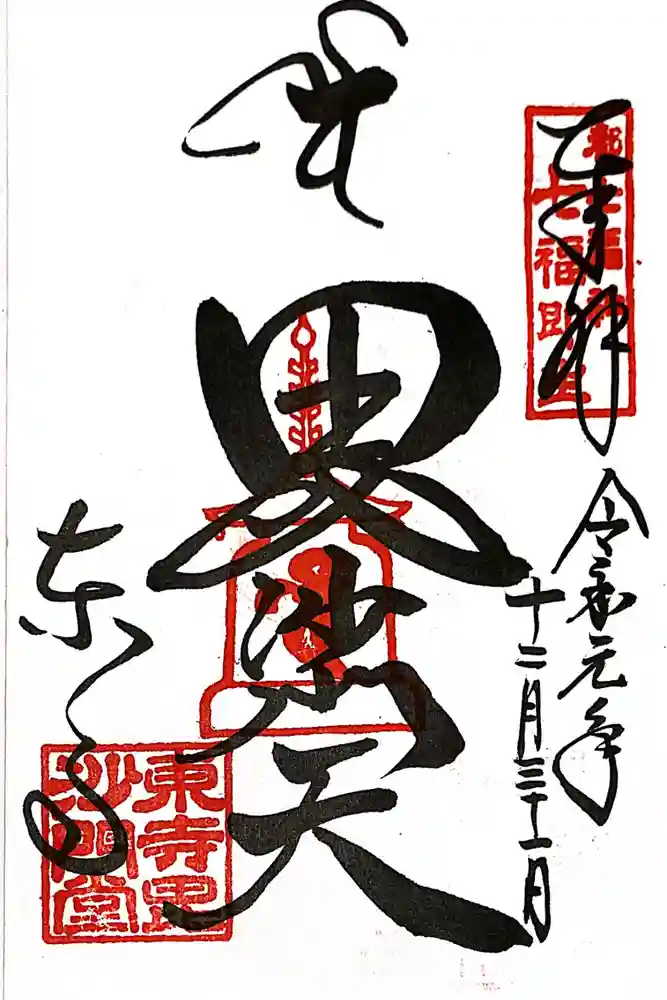 都七福神
七福即生
奉拝
令和元年
十二月三十一日
毘沙門天
東寺
東寺毘
沙門堂